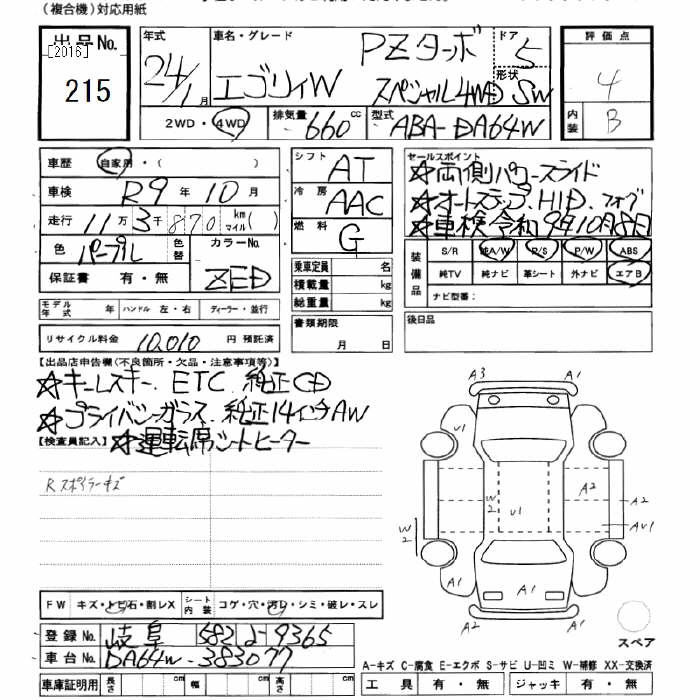 (複合機)対応用紙
出品No.
[2016]
215
年式
24/1月
車名・グレード
エブリィW
PZターボ
スペシャル4WD
ドア
5
形状
SW
2WD・4WD
排気量
660 cc
型式
ABA-DA64W
評価点
4
内装
B
車歴
自家用・( )
車検
R9年10月
走行
11万3千870 km マイル( )
色
パープル
色替
カラーNo.
ZED
保証書 有・無
モデル年式 年
ハンドル 左・右
ディーラー・並行
リサイクル料金 10,010 円 預託済
シフト
AT
冷房
AAC
燃料
G
乗車定員 名
積載量 kg
総重量 kg
書類期限
月 日
セールスポイント
☆両側パワースライド
☆オートステップ.HID.フォグ
☆車検令和9年10月8日
装備品
S/R 純A/W P/S P/W ABS
純TV 純ナビ 革シート 外ナビ エアB
ナビ型番:
後日品
【出品店申告欄(不良箇所・欠品・注意事項等)】
☆キーレスキー.ETC.純正CD
☆プライバシーガラス.純正14インチAW
【検査員記入】
☆運転席シートヒーター
Rスポイラーキズ
A3
A1
U1
W2
U1
A2
A2
AU1
W2
A1
A1
A1
A2
A1
スペア
FW キズ・トビ石・割レX
シート内装 コゲ・穴・汚レ・シミ・破レ・スレ
登録No. 岐阜 582 よ 9365
車台No. DA64W-383077
車庫証明用 長さ cm 幅 cm 高さ cm
A-キズ C-腐食 E-エクボ S-サビ U-凹ミ W-補修 XX-交換済
工具 有・無 ジャッキ 有・無